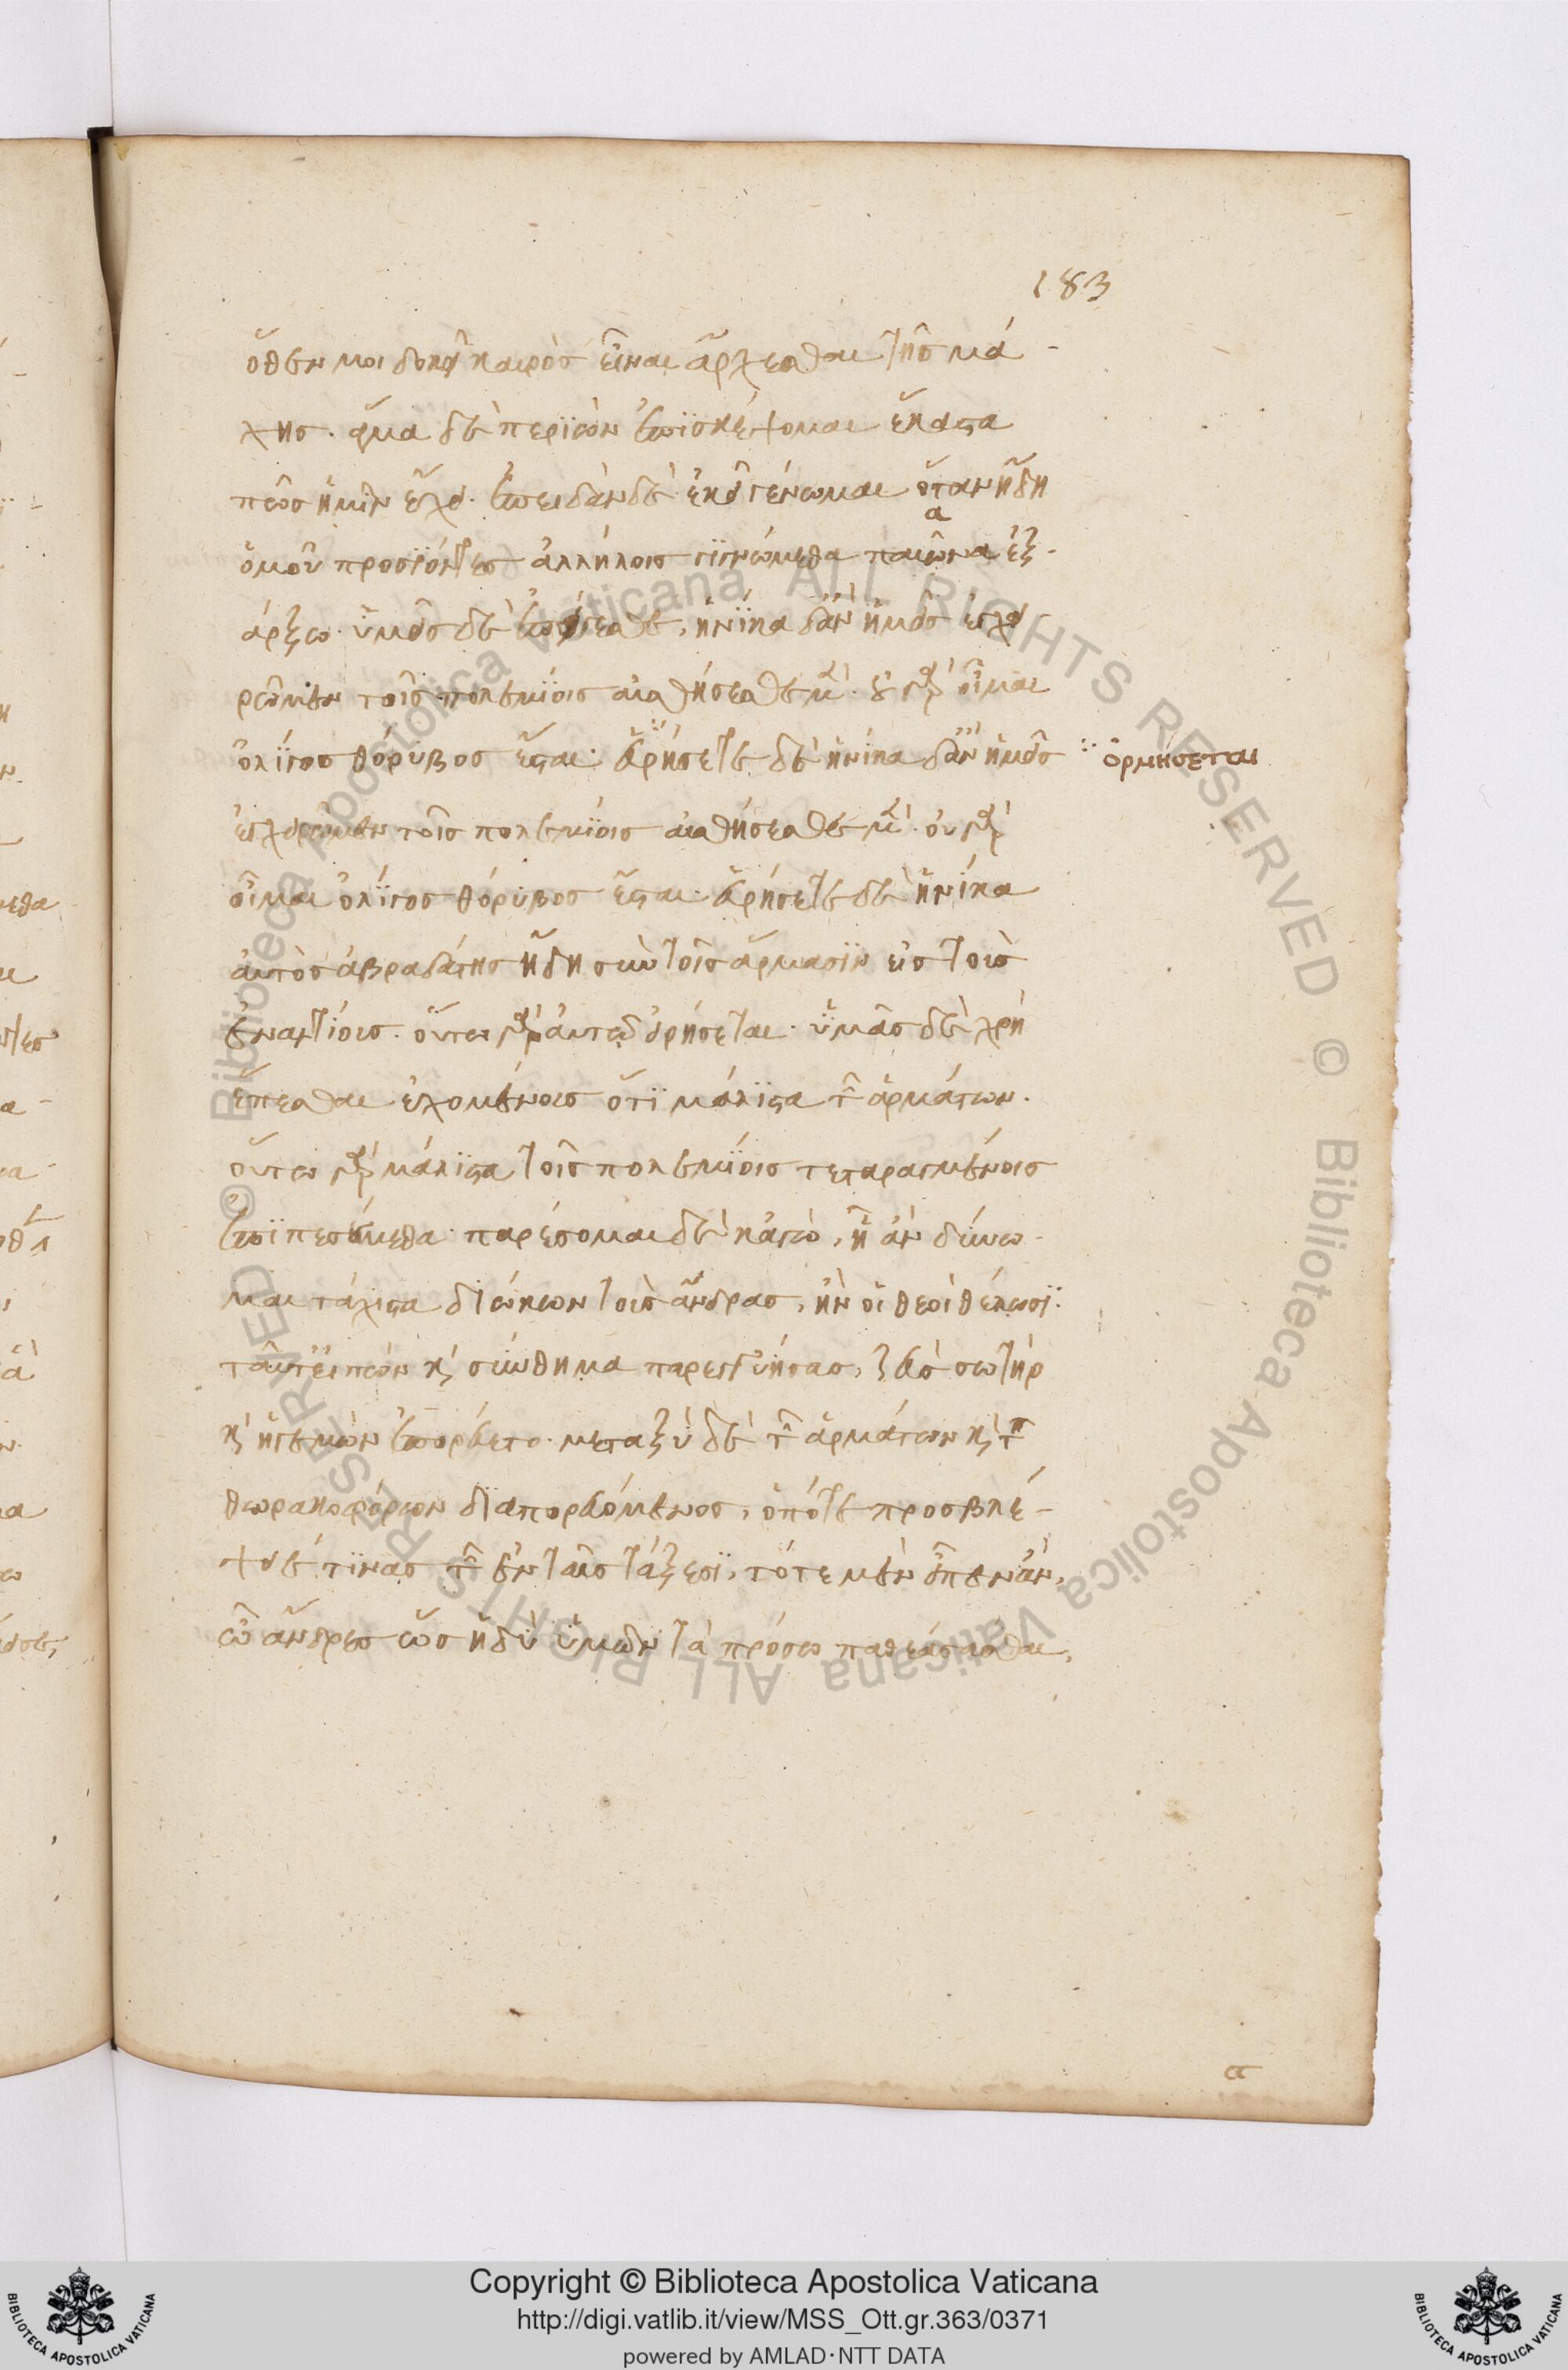 183
ὅθεν μοι δοκεῖ καιρὸς εἶναι ἄρχεσθαι τῆς μά-
χης. ἅμα δὲ περϊϊὼν ἐπϊσκέψομαι ἕκαστα
πῶς ἡμῖν ἔχει. ἐπειδὰν δὲ ἐκεῖ γένωμαι ὅταν ἤδη
ὁμοῦ προσϊόντες ἀλλήλοις γϊγνώμεθα παιῶνα ἐξ-
α
άρξω. ὑμεῖς δὲ ἐπείγεσθε, ἡνϊκα δἂν ἡμεῖς ἐγχει
ρῶμεν τοῖς πολεμϊοις αἰσθήσεσθε μὲν. οὐ γὰρ οἶμαι
ὀλίγος θόρυβος ἔσται. ὁρμήσετε δὲ ἡνίκα δἂν ἡμεῖς
ὁρμήσεται
ἐγχειρῶμεν τοῖς πολεμϊοις αἰσθήσεσθε μὲν. οὐ γὰρ
οἶμαι ὀλίγος θόρυβος ἔσται. ὁρμήσετε δὲ ἡνίκα
αὐτὸς ἀβραδάτης ἤδη σὺν τοῖς ἅρμασϊν εἰς τοὺς
ἐναντίους. οὕτω γὰρ αὐτῷ εἰρήσεται. ὑμᾶς δὲ χρὴ
ἕπεσθαι ἐχομένους ὅτϊ μάλϊστα τῶν ἁρμάτων.
οὕτω γὰρ μάλϊστα τοῖς πολεμϊοις τεταραγμένοις
ἐπϊπεσούμεθα. παρέσομαι δὲ κἀγὼ, ᾗ ἂν δύνω-
μαι τάχιστα διώκων τοὺς ἄνδρας, ἢν οἱ θεοὶ θέλωσϊ.
ταῦτ εἰπὼν καὶ σύνθημα παρεγγυήσας, ζεὺς σωτὴρ
καὶ ἡγεμὼν ἐπορεύετο. μεταξὺ δὲ τῶν ἁρμάτων καὶ τῶν
θωρακοφόρων διαπορευόμενος, ὁπότε προσβλέ-
ψειέ τϊνας τῶν ἐν ταῖς τάξεσϊ, τότε μὲν εἶπεν ἂν,
ὦ ἄνδρες ὡς ἡδὺ ὑμῶν τὰ πρόσω παθεάσασθαι,
Copyright © Biblioteca Apostolica Vaticana
http://digi.vatlib.it/view/MSS_Ott.gr.363/0371
powered by AMLAD·NTT DATA
BIBLIOTECA APOSTOLICA VATICANA
BIBLIOTECA APOSTOLICA VATICANA
© Biblioteca Apostolica Vaticana ALL RIGHTS RESERVED © Biblioteca Apostolica Vaticana ALL RIGHTS RESERVED